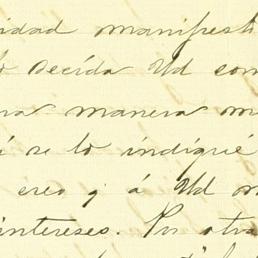 idad manifest
o decida Ud com
ra manera m
í se lo indiqué
creo q á Ud m
intereses. Por otra